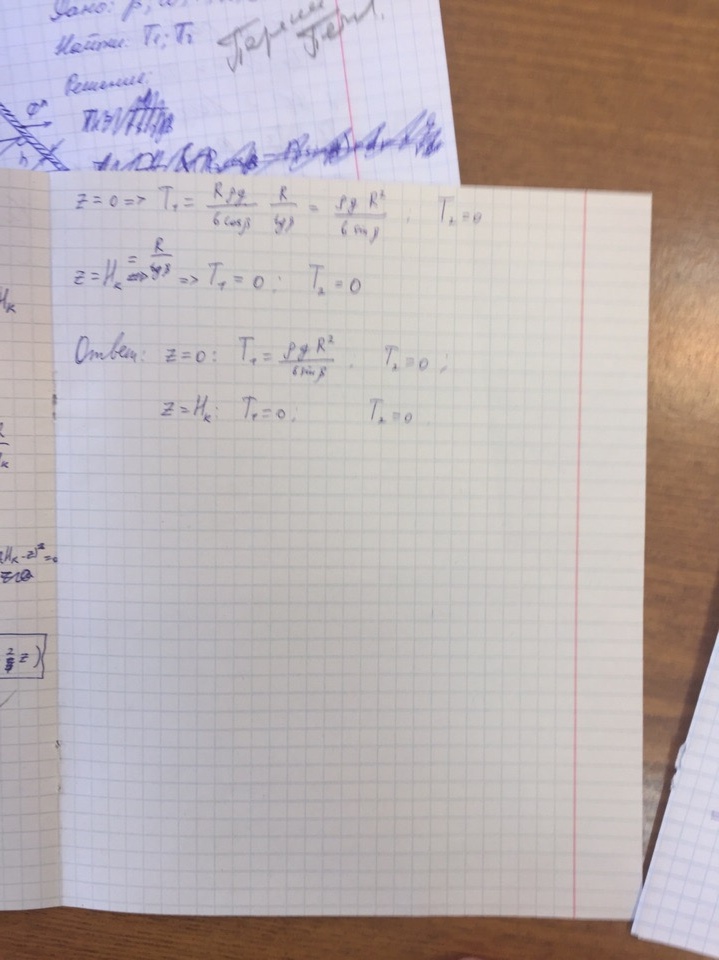 Дано: ρ,
Найти: T₁; T₂
Решение:
h
z=0 => T₁ = Rρg/6cosβ R/tgβ = ρgR²/6sinβ ; T₂=0
z=Hₖ = R/tgβ => T₁ = 0 ; T₂ = 0
Ответ: z=0: T₁ = ρgR²/6sinβ ; T₂=0 ;
z=Hₖ: T₁=0 ; T₂=0
Hₖ
(Hₖ-z)²
z)